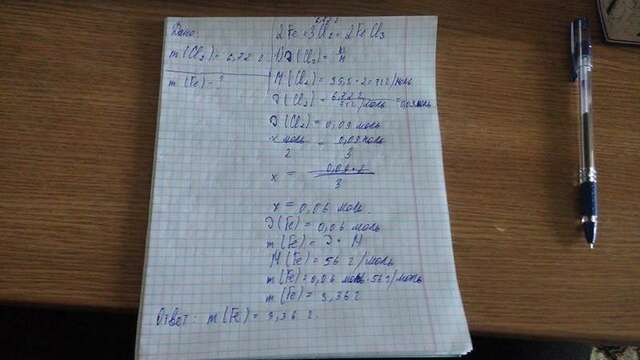 Дано:
m(Cl2)=6,72 г
m(Fe)-?
6,72 г
2Fe+3Cl2=2FeCl3
1) ν(Cl2)= m/M
M(Cl2)=35,5·2=71 г/моль
ν(Cl2)= 6,72 г / 71 г/моль =0,09 моль
ν(Cl2)=0,09 моль
x моль / 2 = 0,09 моль / 3
x = 0,09·2 / 3
x=0,06 моль
ν(Fe)=0,06 моль
m(Fe)=ν·M
M(Fe)=56 г/моль
m(Fe)=0,06 моль·56 г/моль
m(Fe)=3,36 г
Ответ: m(Fe)=3,36 г.